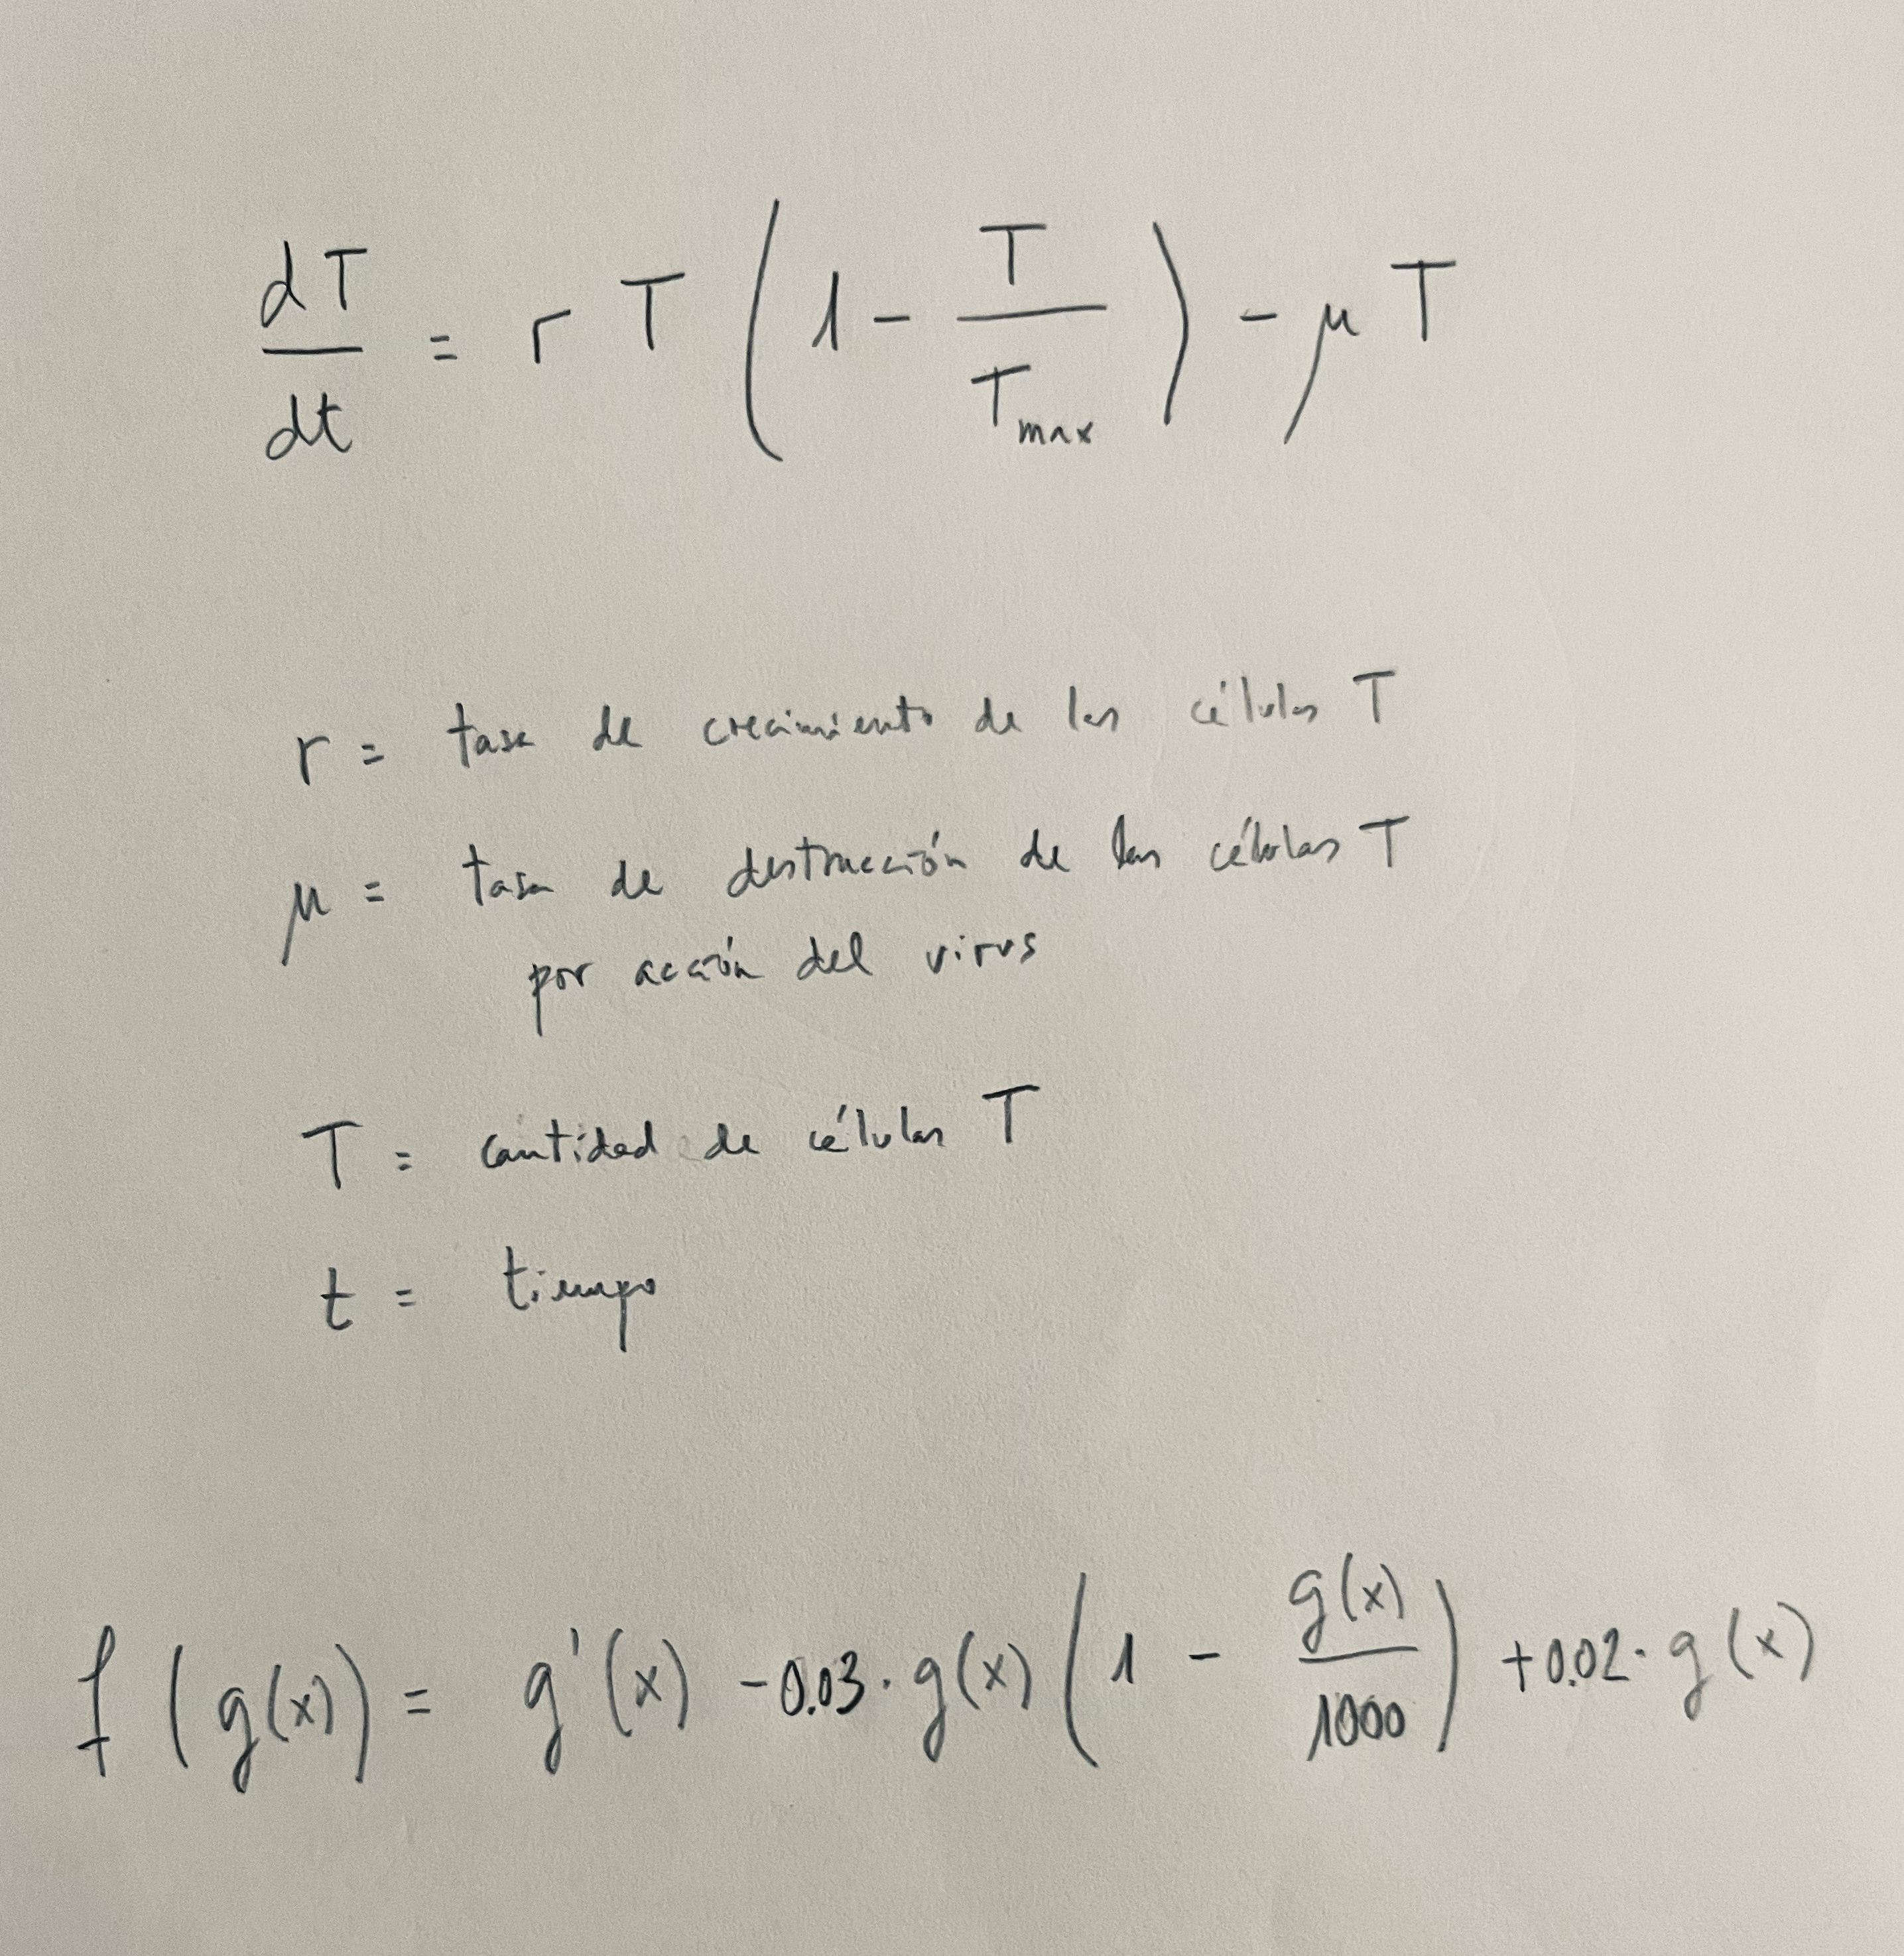 dT/dt = r T (1 - T/Tmax) - μ T
r = tasa de crecimiento de las células T
μ = tasa de destrucción de las células T
por acción del virus
T = cantidad de células T
t = tiempo
f(g(x)) = g'(x) - 0.03 · g(x) (1 - g(x)/1000) + 0.02 · g(x)